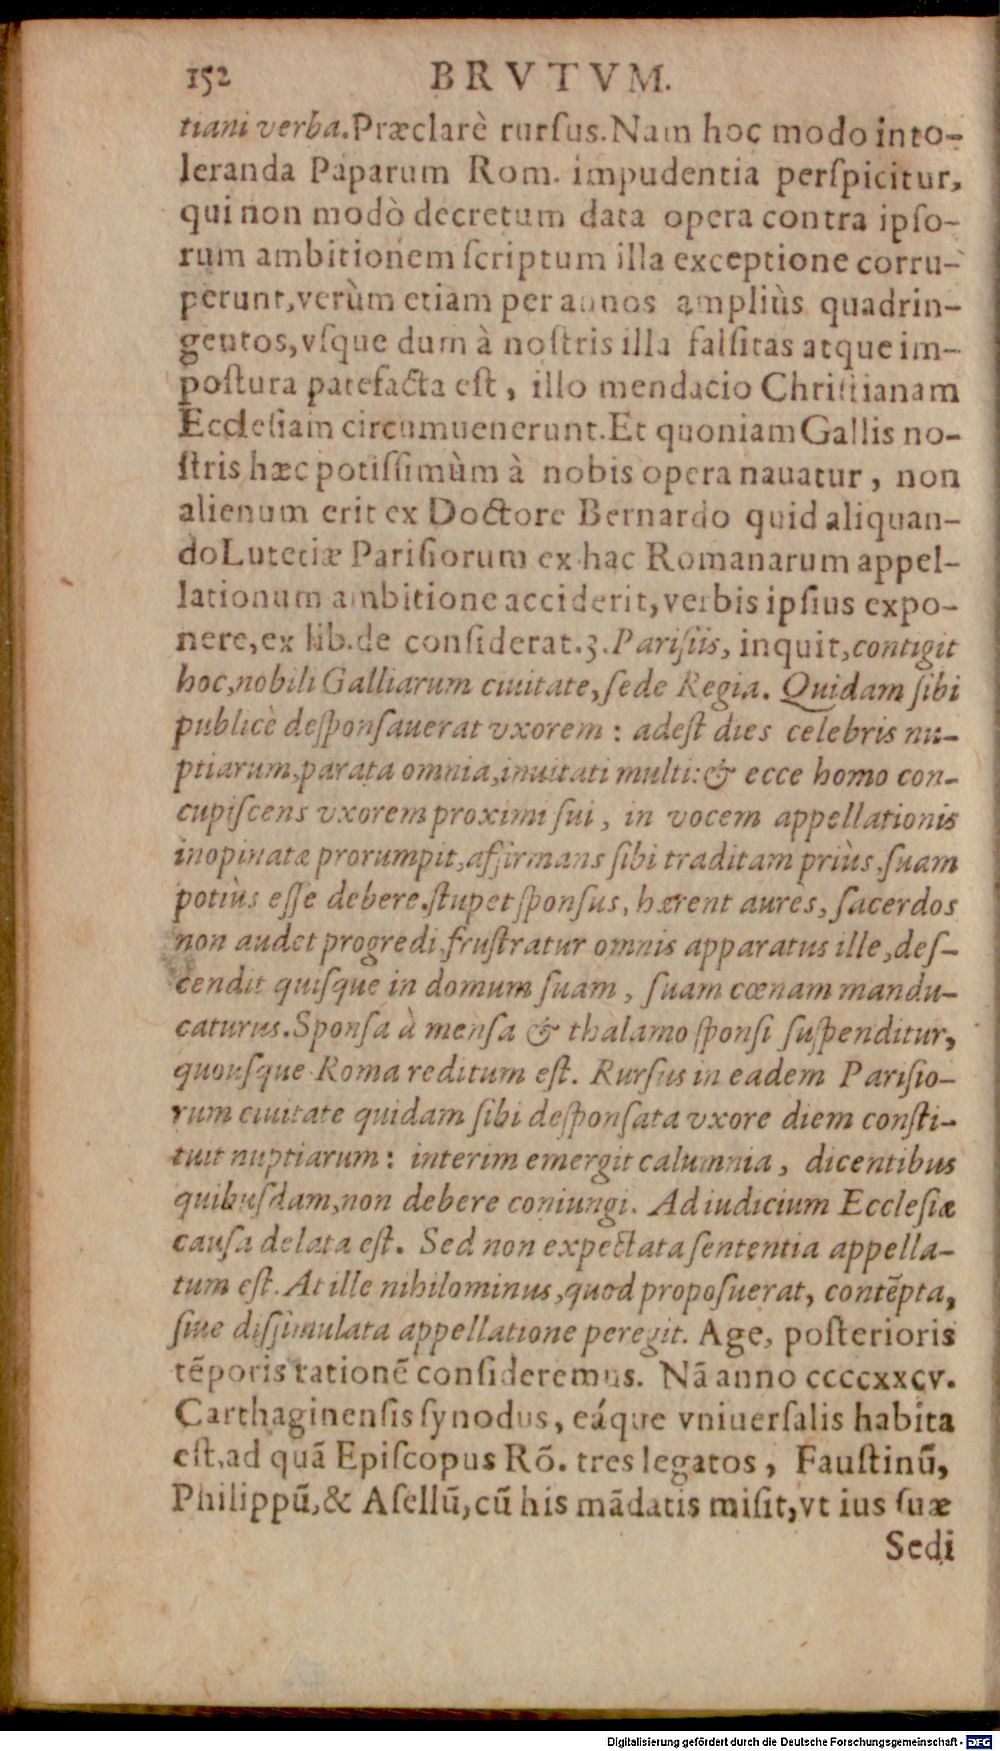 152 BRVTVM.
tiani verba.Præclarè rurſus.Nam hoc modo into-
leranda Paparum Rom. impudentia perſpicitur,
qui non modò decretum data opera contra ipſo-
rum ambitionem ſcriptum illa exceptione corru-
perunt,verùm etiam per annos ampliùs quadrin-
gentos,vſque dum à noſtris illa falſitas atque im-
poſtura patefacta eſt, illo mendacio Chriſtianam
Eccleſiam circumuenerunt.Et quoniam Gallis no-
ſtris hæc potiſſimùm à nobis opera nauatur, non
alienum erit ex Doctore Bernardo quid aliquan-
do Lutetiæ Pariſiorum ex hac Romanarum appel-
lationum ambitione acciderit,verbis ipſius expo-
nere,ex lib.de conſiderat.3.Pariſiis, inquit,contigit
hoc,nobili Galliarum ciuitate,ſede Regia. Quidam ſibi
publicè deſponſauerat vxorem: adeſt dies celebris nu-
ptiarum,parata omnia,inuitati multi:& ecce homo con-
cupiſcens vxorem proximi ſui, in vocem appellationis
inopinatæ prorumpit,affirmans ſibi traditam priùs,ſuam
potiùs eſſe debere.ſtupet ſponſus, hærent aures, ſacerdos
non audet progredi,fruſtratur omnis apparatus ille,deſ-
cendit quiſque in domum ſuam, ſuam cœnam mandu-
caturus.Sponſa à menſa & thalamo ſponſi ſuſpenditur,
quouſque Roma reditum eſt. Rurſus in eadem Pariſio-
rum ciuitate quidam ſibi deſponſata vxore diem conſti-
tuit nuptiarum: interim emergit calumnia, dicentibus
quibuſdam,non debere coniungi. Ad iudicium Eccleſiæ
cauſa delata eſt. Sed non expectata ſententia appella-
tum eſt. At ille nihilominus,quod propoſuerat, contẽpta,
ſiue diſſimulata appellatione peregit. Age, poſterioris
tẽporis rationẽ conſideremus. Nã anno ccccxxcv.
Carthaginenſis ſynodus, eáque vniuerſalis habita
eſt,ad quã Epiſcopus Rõ. tres legatos, Fauſtinũ,
Philippũ,& Aſellũ,cũ his mãdatis miſit,vt ius ſuæ
Sedi
Digitalisierung gefördert durch die Deutsche Forschungsgemeinschaft - DFG